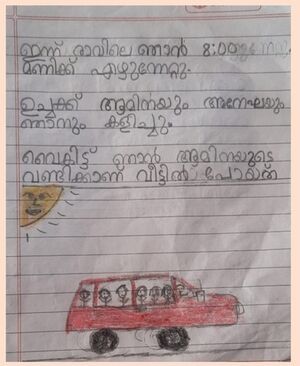 ഇന്ന് രാവിലെ ഞാൻ 8:00
മണിക്ക് എഴുന്നേറ്റു.
ഉച്ചക്ക് ആമിനയും അനേഘയും
ഞാനും കളിച്ചു.
വൈകിട്ട് ഞാൻ ആമിനയുടെ
വണ്ടിക്കാണ് വീട്ടിൽ പോയത്